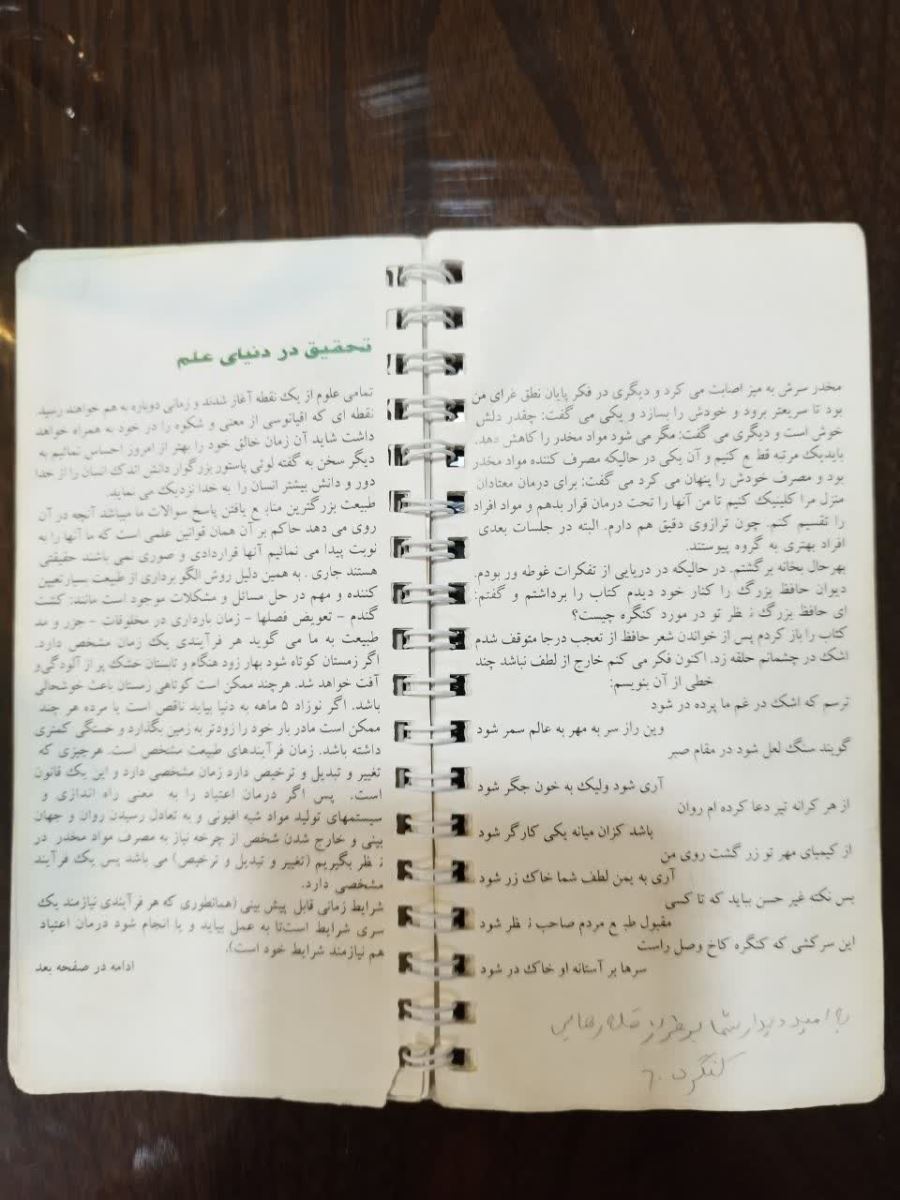 مخدر سرش به میز اصابت می کرد و دیگری در فکر پایان نطق غرای من
بود تا سریعتر برود و خودش را بسازد و یکی می گفت: چقدر دلش
خوش است و دیگری می گفت: مگر می شود مواد مخدر را کاهش دهد.
بایدیک مرتبه قطع کنیم و آن یکی در حالیکه مصرف کننده مواد مخدر
بود و مصرف خودش را پنهان می کرد می گفت: برای درمان معتادان
منزل مرا کلینیک کنیم تا من آنها را تحت درمان قرار بدهم و مواد افراد
را تقسیم کنم. چون ترازوی دقیق هم دارم. البته در جلسات بعدی
افراد بهتری به گروه پیوستند.
بهرحال بخانه برگشتم. در حالیکه در دریایی از تفکرات غوطه ور بودم.
دیوان حافظ بزرگ را کنار خود دیدم کتاب را برداشتم و گفتم:
ای حافظ بزرگ نظر تو در مورد کنگره چیست؟
کتاب را باز کردم پس از خواندن شعر حافظ از تعجب درجا متوقف شدم
اشک در چشمانم حلقه زد. اکنون فکر می کنم خارج از لطف نباشد چند
خطی از آن بنویسم:
ترسم که اشک در غم ما پرده در شود
وین راز سر به مهر به عالم سمر شود
گویند سنگ لعل شود در مقام صبر
آری شود ولیک به خون جگر شود
از هر کرانه تیر دعا کرده ام روان
باشد کزان میانه یکی کارگر شود
از کیمیای مهر تو زر گشت روی من
آری به یمن لطف شما خاک زر شود
بس نکته غیر حسن بباید که تا کسی
مقبول طبع مردم صاحب نظر شود
این سرکشی که کنگره کاخ وصل راست
سرها بر آستانه او خاک در شود
به امید دیدار شما بر فراز قله رهایی
کنگره ۶۰
تحقیق در دنیای علم
تمامی علوم از یک نقطه آغاز شدند و زمانی دوباره به هم خواهند رسید.
نقطه ای که اقیانوسی از معنی و شکوه را در خود به همراه خواهد
داشت شاید آن زمان خالق خود را بهتر از امروز احساس نمائیم به
دیگر سخن به گفته لوئی پاستور بزرگوار دانش اندک انسان را از خدا
دور و دانش بیشتر انسان را به خدا نزدیک می نماید.
طبیعت بزرگترین منابع یافتن پاسخ سوالات ما میباشد آنچه در آن
روی می دهد حاکم بر آن همان قوانین علمی است که ما آنها را به
نوبت پیدا می نمائیم آنها قراردادی و صوری نمی باشند حقیقتی
هستند جاری. به همین دلیل روش الگو برداری از طبیعت بسیارتعیین
کننده و مهم در حل مسائل و مشکلات موجود است مانند: کشت
گندم - تعویض فصلها - زمان بارداری در مخلوقات - جزر و مد
طبیعت به ما می گوید هر فرآیندی یک زمان مشخص دارد.
اگر زمستان کوتاه شود بهار زود هنگام و تابستان خشک پر از آلودگی و
آفت خواهد شد. هرچند ممکن است کوتاهی زمستان باعث خوشحالی
باشد. اگر نوزاد ۵ ماهه به دنیا بیاید ناقص است یا مرده هر چند
ممکن است مادر بار خود را زودتر به زمین بگذارد و خستگی کمتری
داشته باشد. زمان فرآیندهای طبیعت مشخص است. هرچیزی که
تغییر و تبدیل و ترخیص دارد زمان مشخصی دارد و این یک قانون
است. پس اگر درمان اعتیاد را به معنی راه اندازی و
سیستمهای تولید مواد شبه افیونی و به تعادل رسیدن روان و جهان
بینی و خارج شدن شخص از چرخه نیاز به مصرف مواد مخدر در
نظر بگیریم (تغییر و تبدیل و ترخیص) می باشد پس یک فرآیند
مشخصی دارد.
شرایط زمانی قابل پیش بینی (همانطوری که هر فرآیندی نیازمند یک
سری شرایط است‌تا به عمل بیاید و یا انجام شود درمان اعتیاد
هم نیازمند شرایط خود است).
ادامه در صفحه بعد